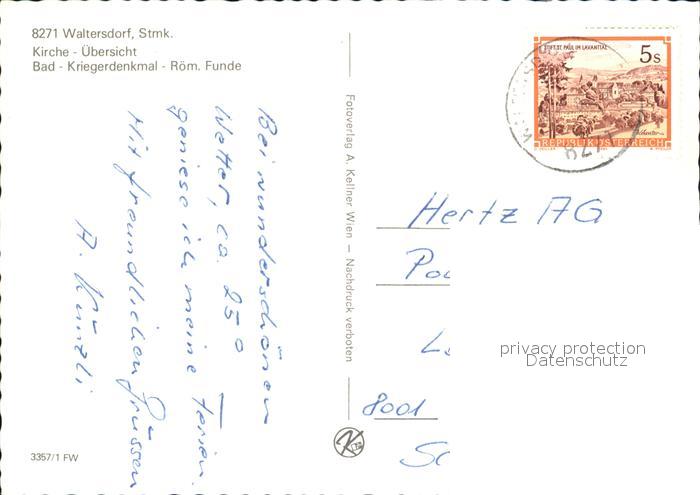 8271 Waltersdorf, Stmk.
Kirche - Übersicht
Bad - Kriegerdenkmal - Röm. Funde
Bei wunderschönem
Wetter, ca. 25°
geniese ich meine Ferien.
Mit freundlichen Grüssen
A. Künzli
Fotoverlag A. Kellner Wien — Nachdruck verboten
STIFT ST. PAUL IM LAVANTTAL
5s
REPUBLIK ÖSTERREICH
8271
Hertz AG
8001
privacy protection
Datenschutz
3357/1 FW